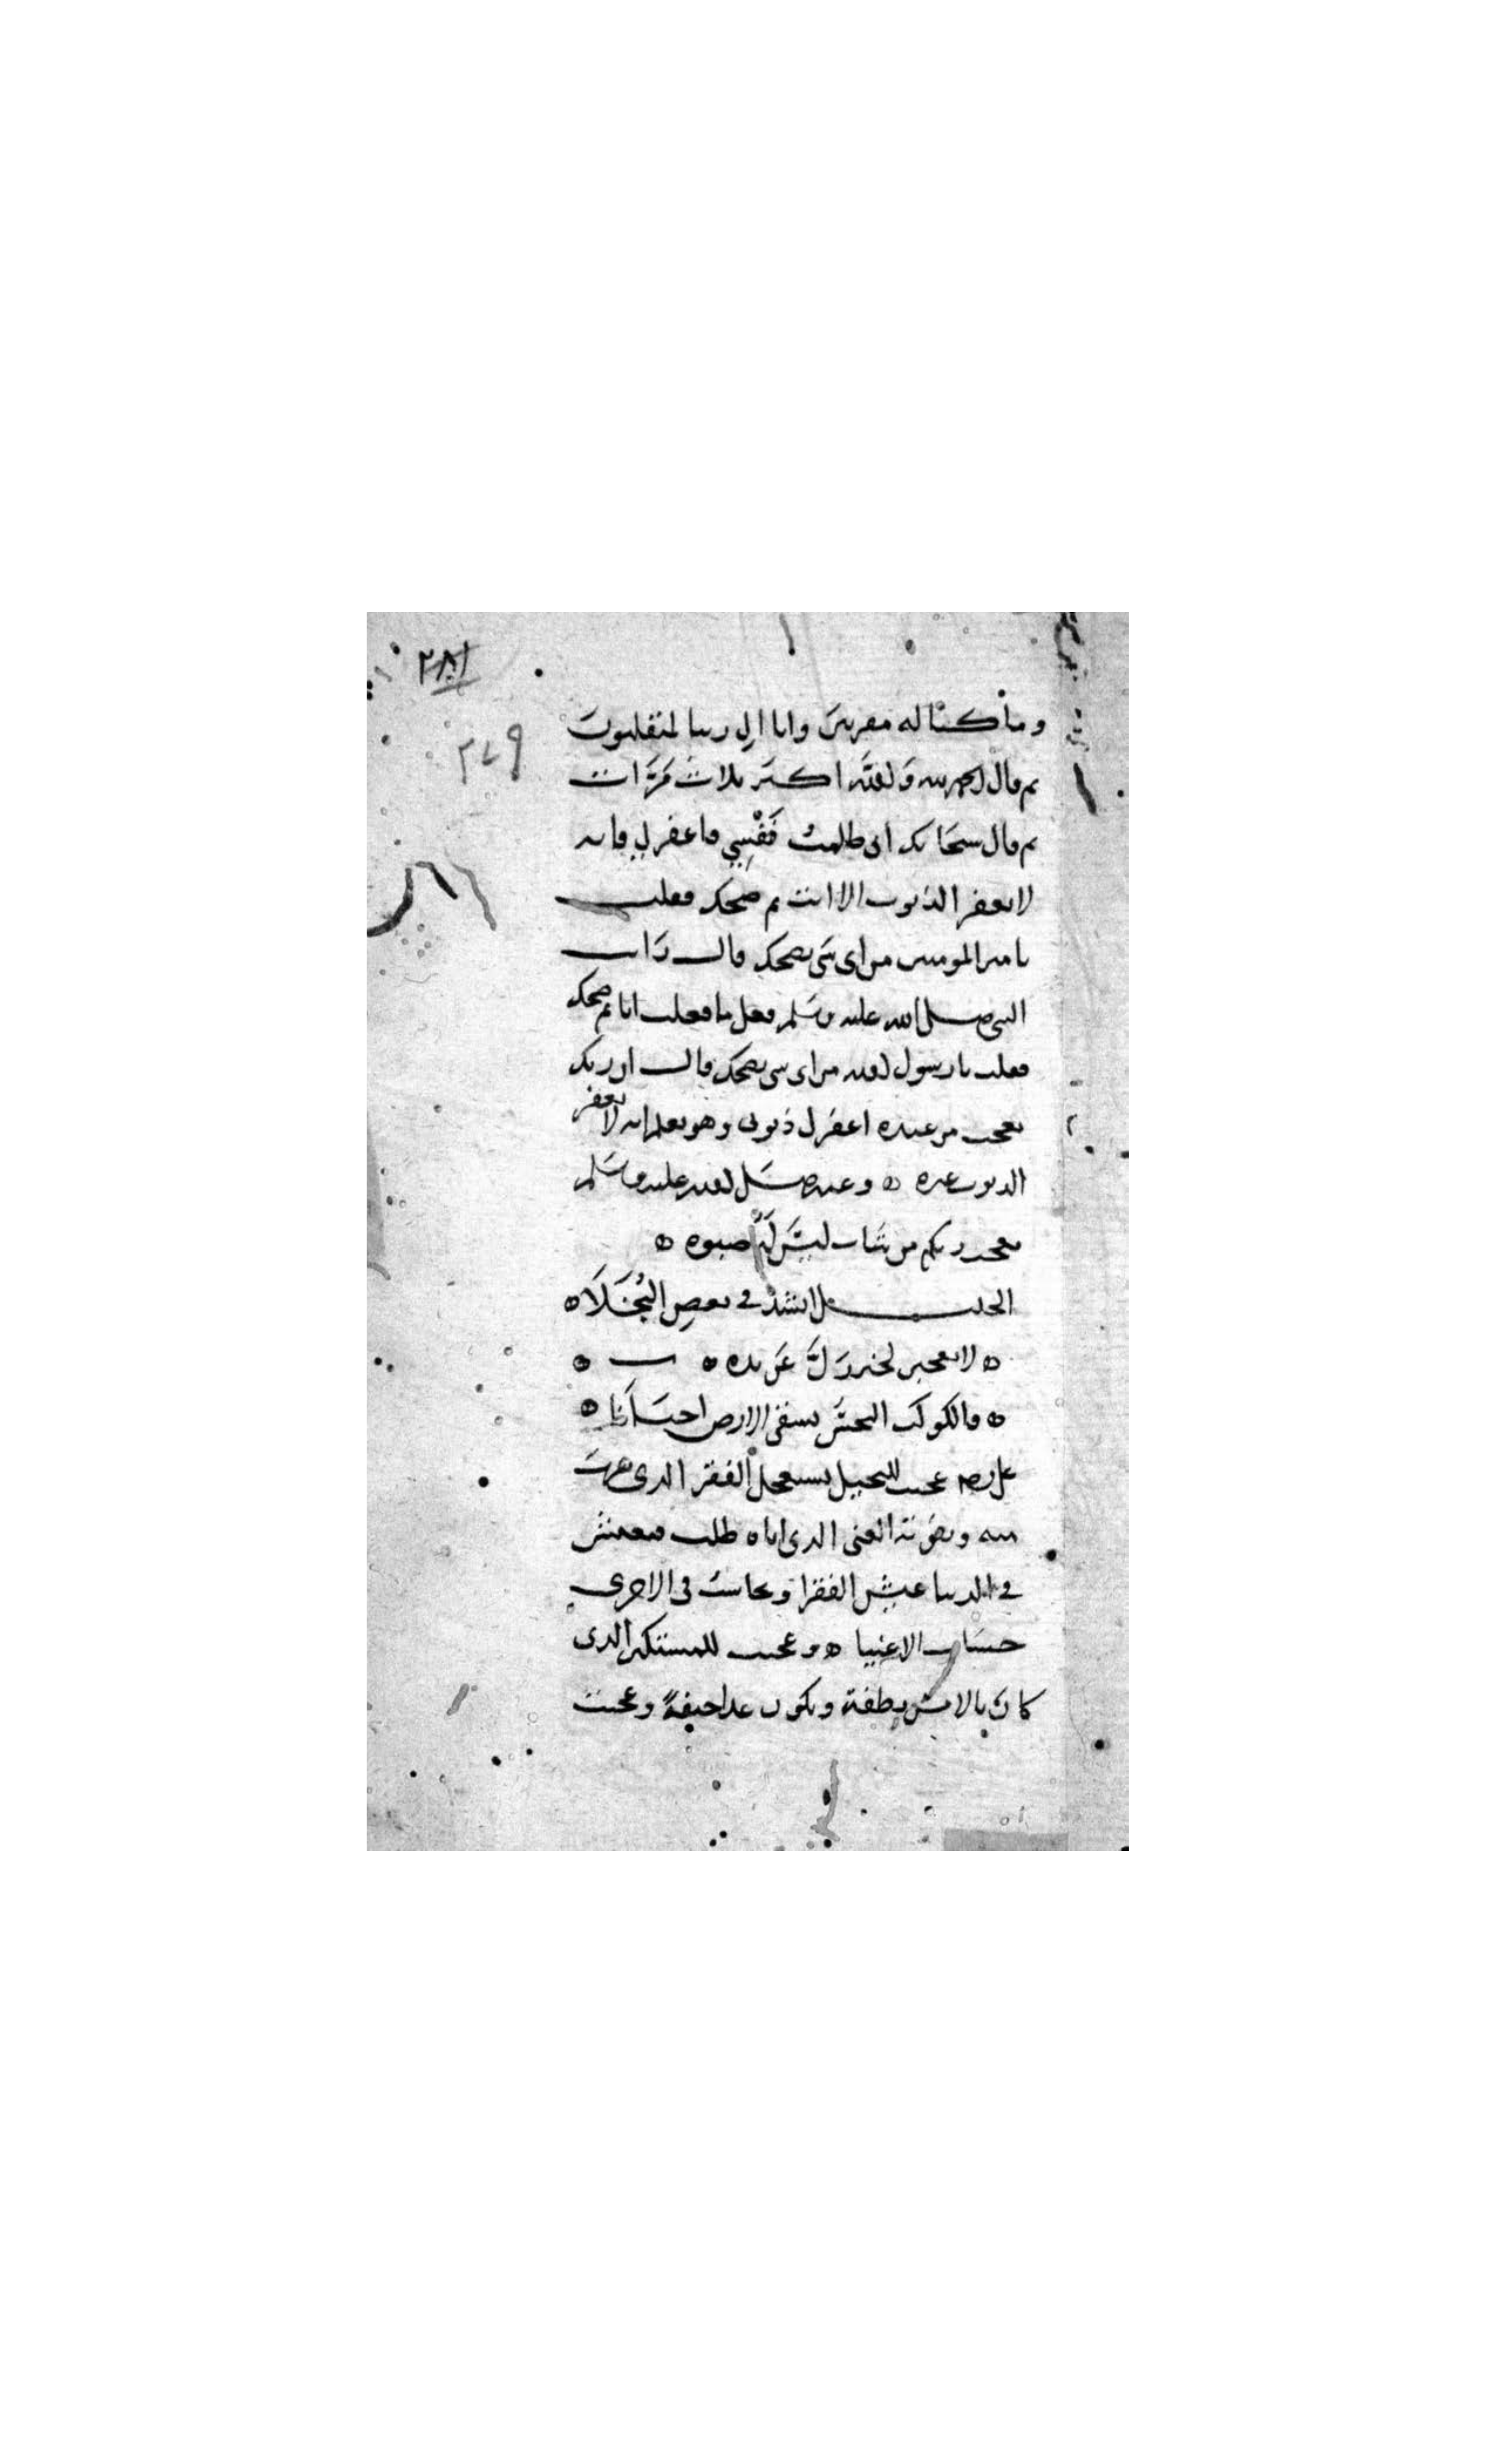 ٢٨١
٢٧٩
وما كنا له مقرنين وانا الى ربنا لمنقلبون
ثم قال الحمد لله والله اكبر ثلاث مرات
ثم قال سبحانك انى ظلمت نفسي فاغفر لي فانه
لا يغفر الذنوب الا انت ثم ضحك فقلت
يا امير المومنين من اى شى تضحك قال رايت
النبي صلى الله عليه وسلم فعل ما فعلت انا ثم ضحك
فقلت يا رسول الله من اى شى تضحك قال ان ربك
يعجب من عبده اغفر لى ذنوبى وهو يعلم انه لا يغفر
الذنوب غيره ٥ وعنه صلى الله عليه وسلم
يعجب ربكم من شاب ليس له صبوه ٥
الخليل انشد في بعض البخلاء
٥ لا تعجبن لخير زل عن يده ٥
٥ فالكوكب النحس يسقى الارض احيانا ٥
على رضه عجبت للبخيل يستعجل الفقر الذى هرب
منه ويفوته الغنى الذى اياه طلب فيعيش
في الدنيا عيش الفقرا ويحاسب في الاخرى
حساب الاغنيا ٥ وعجبت للمستكبر الذى
كان بالامس نطفة ويكون غدا جيفة وعجبت